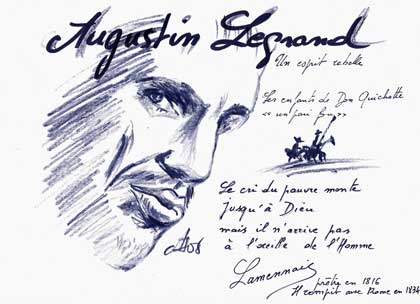 Augustin Legrand
Un esprit rebelle
Les enfants de Don Quichotte
« un pari fou »
Le cri du pauvre monte
jusqu'à Dieu
mais il n'arrive pas
à l'oreille de l'Homme
Lamennais
prêtre en 1816
Il rompit avec Rome en 1834